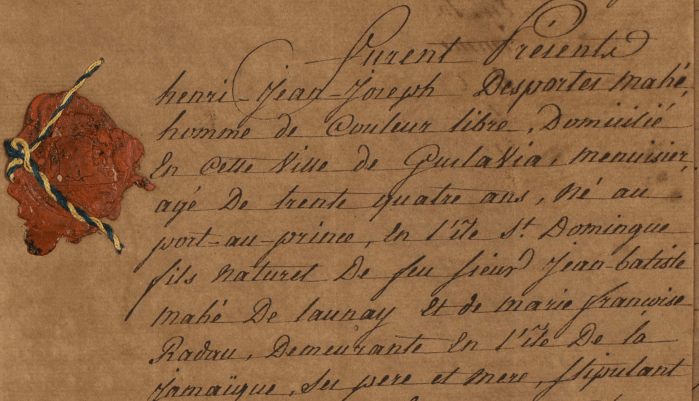 furent Présents
henri-Jean-Joseph Desportes Mahé,
homme de Couleur libre, Domicilié
En cette Ville de Gustavia, menuisier,
agé De trente quatre ans, Né au
port-au-prince, En l'ile St Domingue
fils Naturel De feu sieur Jean-batiste
Mahé De launay Et de marie françoise
Radau, Demeurante En l'ile De la
Jamaïque, Ses pere et mere, Stipulant